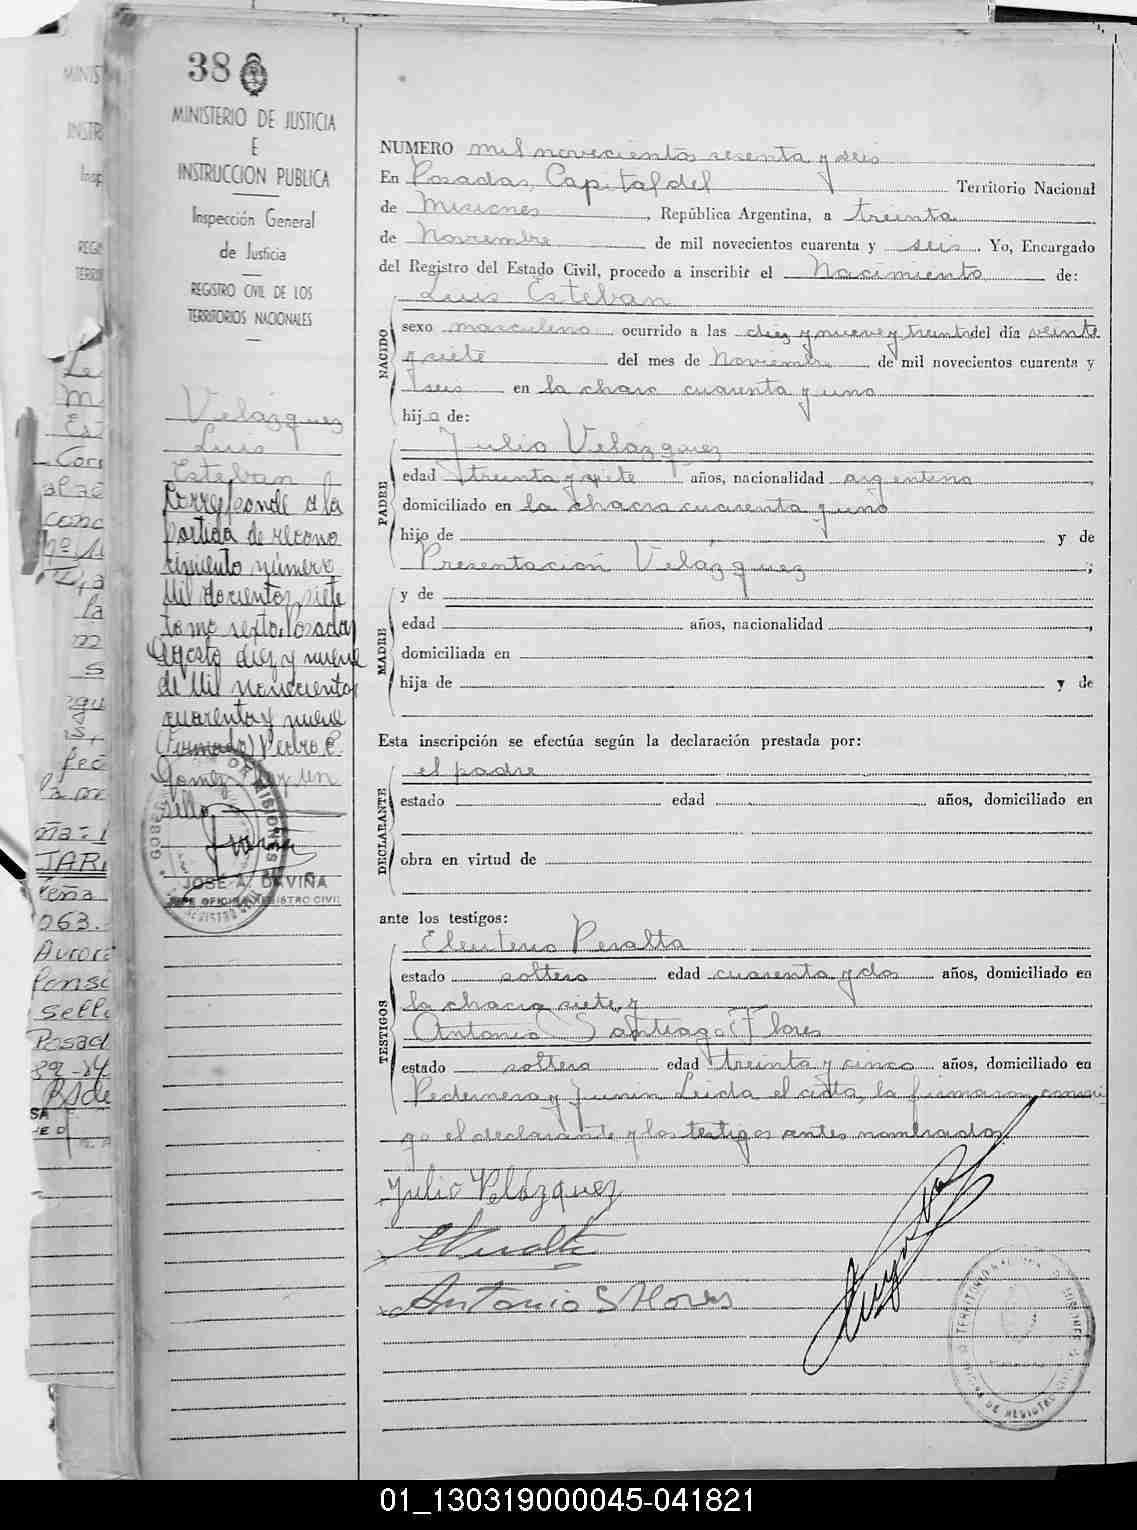 38
MINISTERIO DE JUSTICIA
E
INSTRUCCION PUBLICA
Inspección General
de Justicia
REGISTRO CIVIL DE LOS
TERRITORIOS NACIONALES
Velázquez
Luis
Esteban
Corresponde a la
partida de recono
cimiento número
Mil docientos siete
tomo sexto. Posadas
Agosto diez y nueve
de Mil novecientos
cuarenta y nueve
(Firmado) Pedro E.
Gomez Hay un
sello
JOSÉ A. DAVIÑA
JEFE OFICINA REGISTRO CIVIL
NUMERO mil novecientos sesenta y seis
En Posadas, Capital del Territorio Nacional
de Misiones, República Argentina, a treinta
de Noviembre de mil novecientos cuarenta y seis. Yo, Encargado
del Registro del Estado Civil, procedo a inscribir el Nacimiento de:
NACIDO
Luis Esteban
sexo masculino ocurrido a las diez y nueve y treinta del día veinte
y siete del mes de Noviembre de mil novecientos cuarenta y
seis en la chacr cuarenta y uno
hijo de:
PADRE
Julio Velázquez
edad treinta y siete años, nacionalidad argentina
domiciliado en la chacra cuarenta y uno
hijo de y de
Presentación Velázquez ;
MADRE
y de
edad años, nacionalidad ,
domiciliada en
hija de y de
Esta inscripción se efectúa según la declaración prestada por:
DECLARANTE
el padre
estado edad años, domiciliado en
obra en virtud de
ante los testigos:
TESTIGOS
Eleuterio Peralta
estado soltero edad cuarenta y dos años, domiciliado en
la chacra siete y
Antonio Santiago Flores
estado soltero edad treinta y cinco años, domiciliado en
Pedernera y Junin Leida el acta, la firmaron conmi
go el declarante y los testigos antes nombrados.
Julio Velázquez
E Peralta
Antonio S Flores
01_130319000045-041821